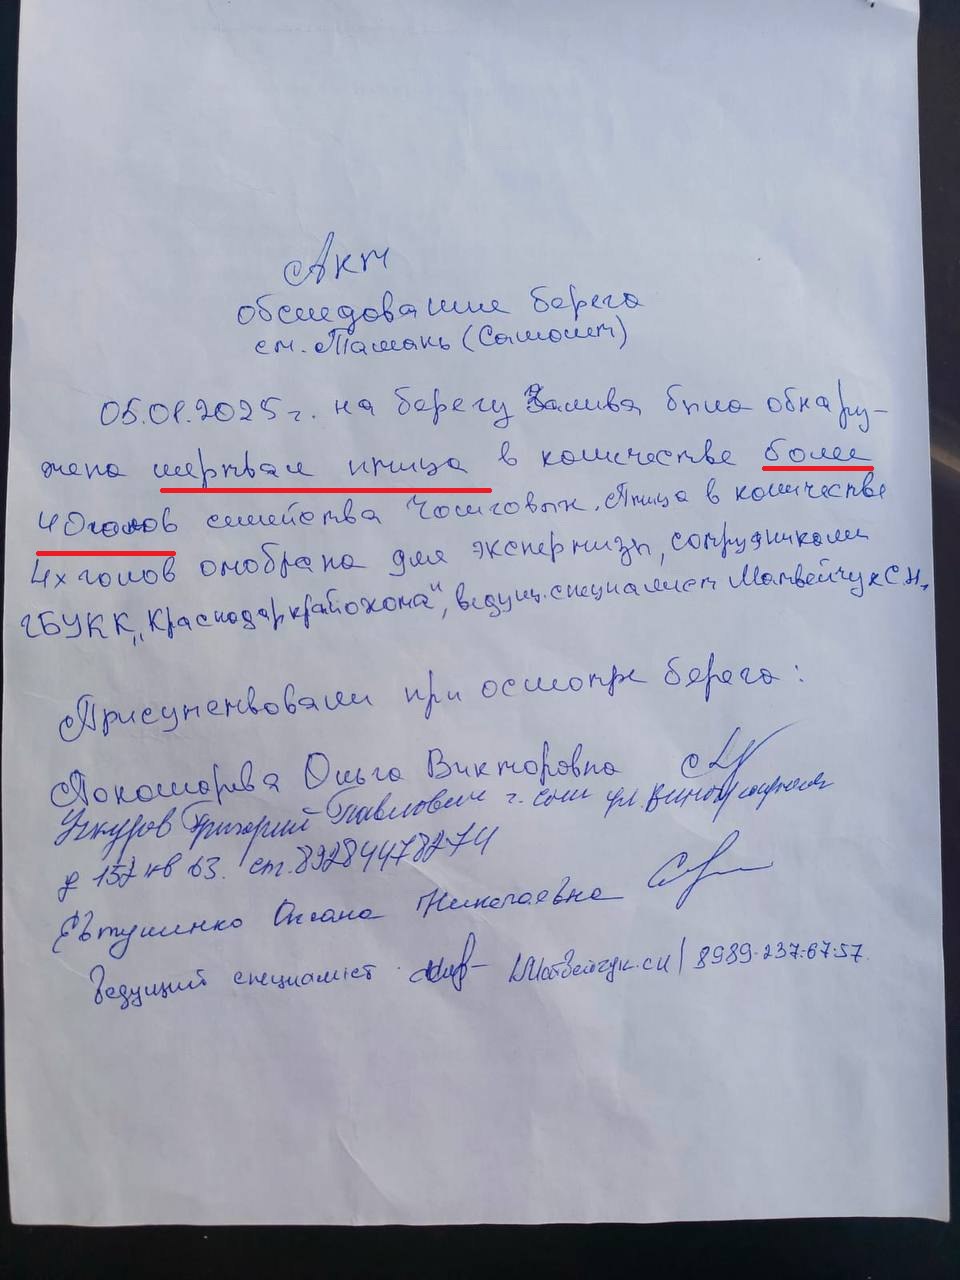 Акт
обследование берега
ст. Тамань (Самолет)
05.01.2025 г. на берегу Залива было обнару-
жена мертвая птица в количестве более
40 голов семейства Чомговых. Птица в количестве
4х голов отобрана для экспертизы, сотрудниками
ГБУ КК „Краснодаркрайохота", ведущ. специалист Матвейчук С.Н,
Присутствовали при осмотре берега:
Покошарева Ольга Викторовна
Григорий Павлович г. Сочи ул. Виноградная
д 152 кв 63. ст. 89284478274
Евтушенко Оксана Николаевна
Ведущий специалист Матвейчук. СН / 8989-237-67-57.